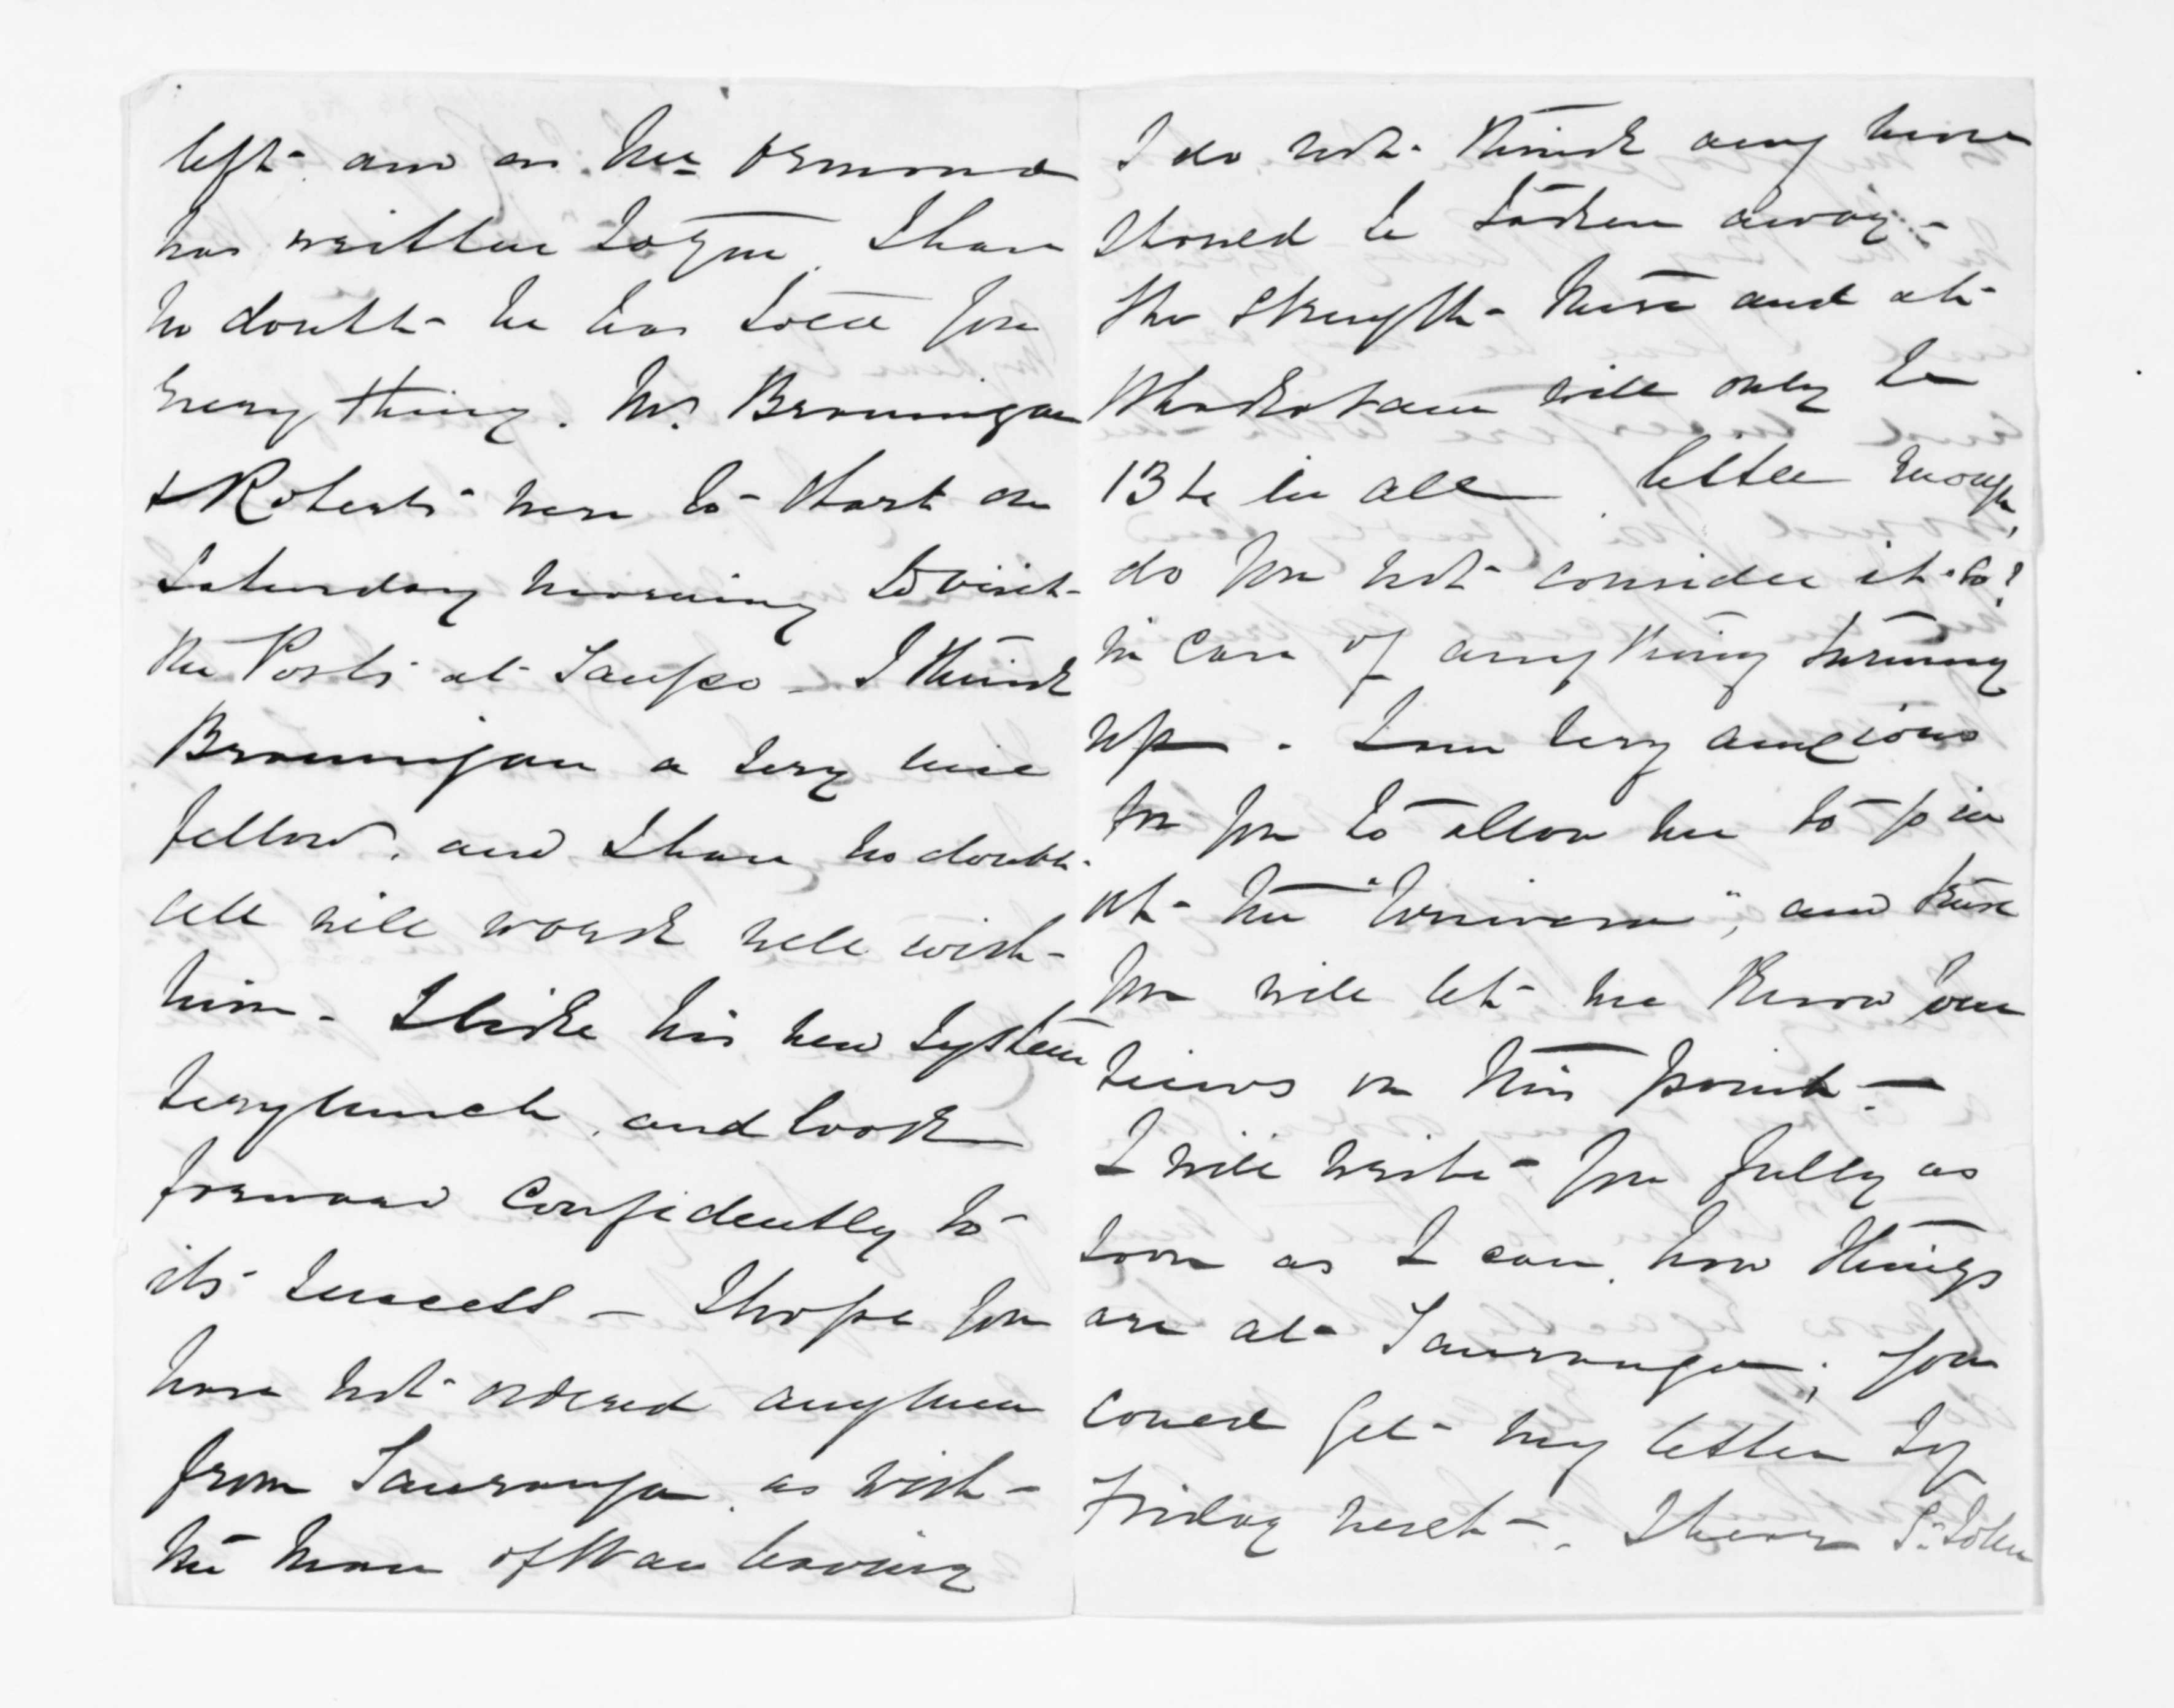 left. and as Mr Ormond
has written to you I have
no doubt he has told you
every thing. Mr. Brannigan
& Roberts were to start on
Saturday morning to visit
the Posts at Taupo - I think
Brannigan a very nice
fellow. and I have no doubt
all will work well with
him - I like his new system
very much, and look
forward confidently to
its success - I hope you
have not ordered any men
from Tauranga as with
the Man of War leaving
I do not think any more
should be taken away -
the strength there and at
Whakatane will only be
13 in all little enough,
do you not consider it so?
in case of anything turning
up - I am very anxious
for you to allow me to
at the "Wairere", and trust
you will let me know your
views on this point -
I will write you fully as
soon as I can how things
are at Tauranga; you
could get my letter by
Friday next -. I hear St. John